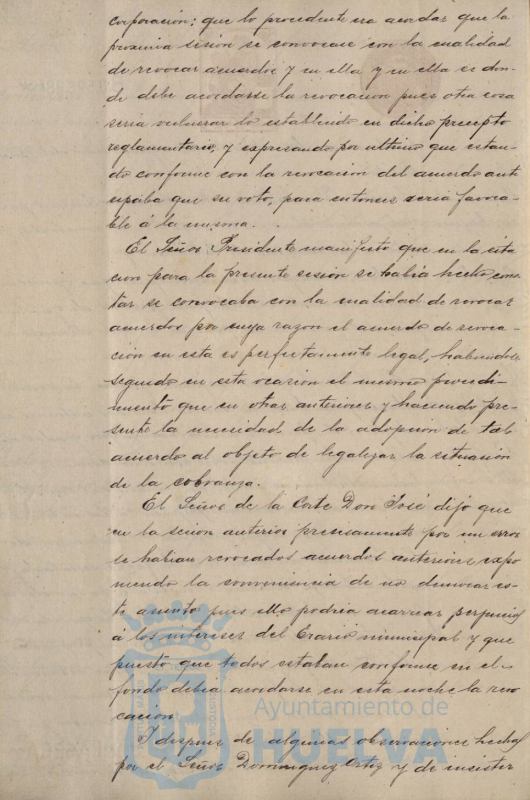 corporación; que lo procedente era acordar que la
proxima sesión se convocase con la cualidad
de revocar acuerdos y en ella y en ella es don-
de debe acordarse la revocacion pues otra cosa
seria vulnerar lo establecido en dicho precepto
reglamentario, y expresando por ultimo que estan-
do conforme con la revocación del acuerdo anti
cipaba que su voto, para entonces seria favora-
ble á la misma.
El Señor Presidente manifestó que en la cita
cion para la presente sesión se habia hecho cons
tar se convocaba con la cualidad de revocar
acuerdos por cuya razon el acuerdo de revoca-
ción en esta es perfectamente legal, habiendose
seguido en esta ocasion el mismo procedi-
miento que en otras anteriores y haciendo pre-
sente la necesidad de la adopcion de tal
acuerdo al objeto de legalizar la situación
de la cobranza.
El Señor de la Corte Don José dijo que
en la sesion anterior precisamente por un error
se habian revocados acuerdos anteriores expo
niendo la conveniencia de no demorar es-
te asunto pues ello podria acarrear perjuicios
á los intereses del Erario municipal y que
puesto que todos estaban conforme en el
fondo debia acordarse en esta noche la revo
cación
Y despues de algunas observaciones hechas
por el Señor Dominguez Ortiz y de insistir
Ayuntamiento de
HUELVA